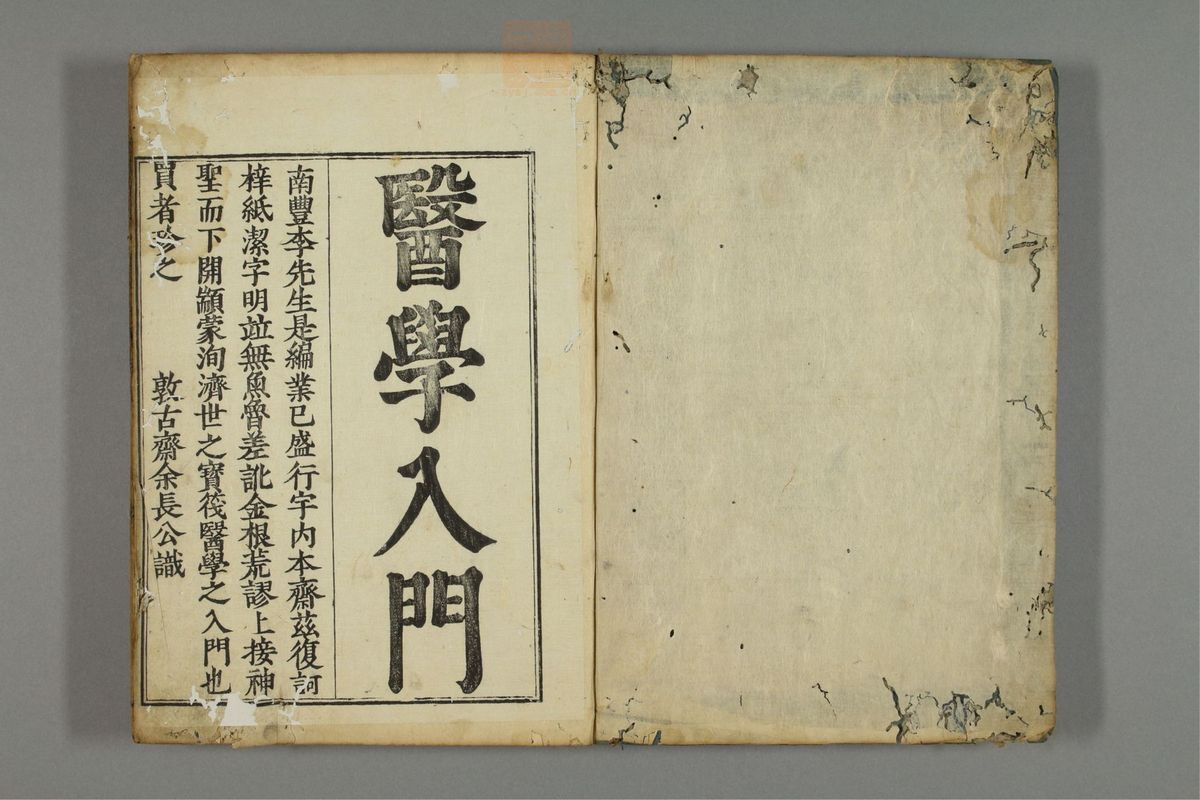 醫學入門
南豐李先生是編業已盛行宇内本齋茲復訶
梓紙潔字明竝無魚魯差訛金根荒謬上接神
聖而下開顓蒙洵濟世之寶筏醫學之入門也
買者 之 敦古齋余長公識